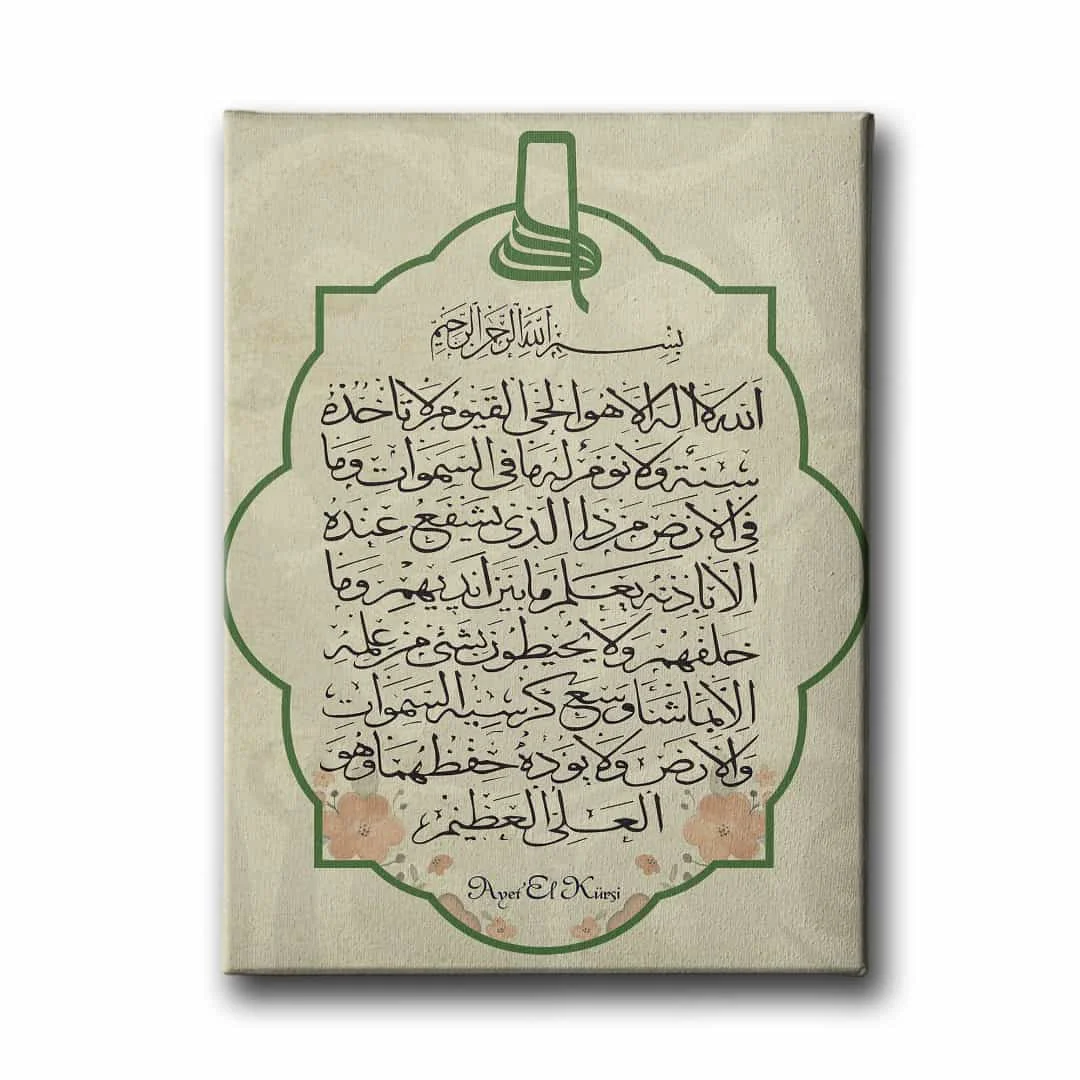 بِسْمِ اللهِ الرَّحْمٰنِ الرَّحِيمِ
اَللهُ لَا اِلٰهَ اِلَّا هُوَ الْحَىُّ الْقَيُّومُ لَا تَاْخُذُهُ
سِنَةٌ وَلَا نَوْمٌ لَهُ مَا فِى السَّمٰوَاتِ وَمَا
فِى الْاَرْضِ مَنْ ذَا الَّذِى يَشْفَعُ عِنْدَهُ
اِلَّا بِاِذْنِهِ يَعْلَمُ مَا بَيْنَ اَيْدِيهِمْ وَمَا
خَلْفَهُمْ وَلَا يُحِيطُونَ بِشَىْءٍ مِنْ عِلْمِهِ
اِلَّا بِمَا شَاءَ وَسِعَ كُرْسِيُّهُ السَّمٰوَاتِ
وَالْاَرْضَ وَلَا يَؤُدُهُ حِفْظُهُمَا وَهُوَ
الْعَلِىُّ الْعَظِيمُ
Ayet'El Kürsi